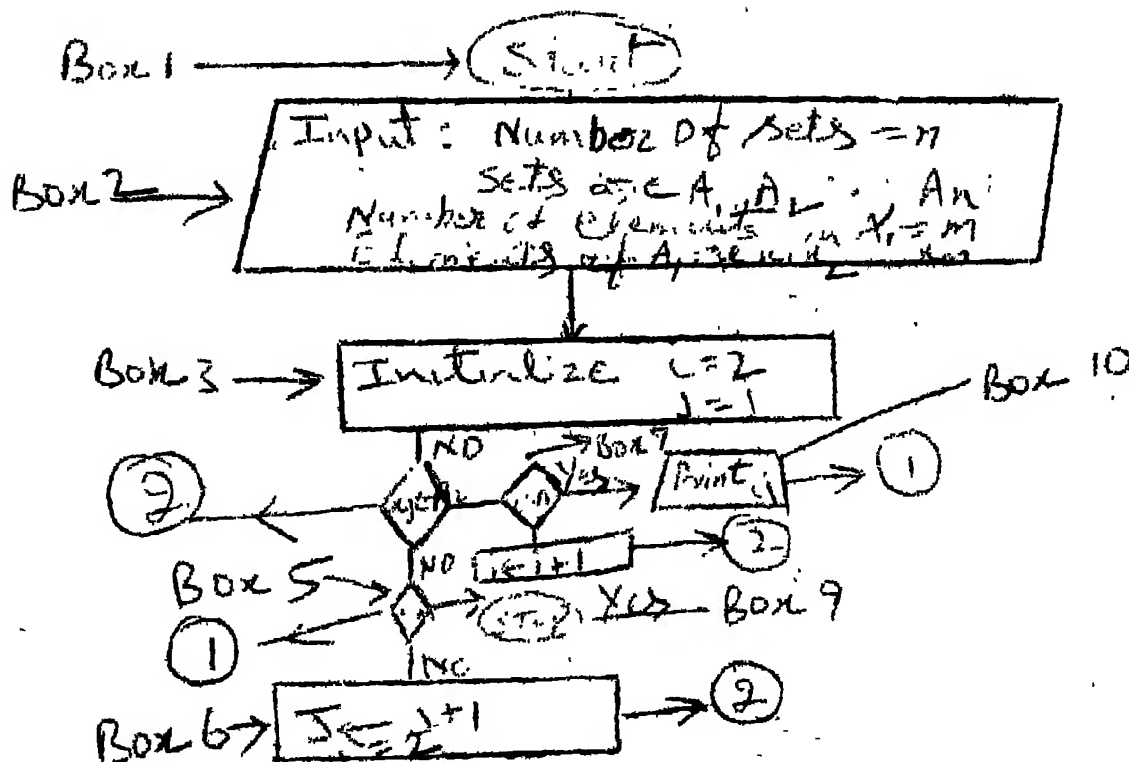 Box 1
Start
Box 2
Input: Number Of sets = n
sets are A₁, A₂ .., An
Number of elements in X₁ = m
Elements of A₁
Box 3
Initialize i = 2
J = 1
Box 10
NO
Box 7
Yes
Print
1
2
NO
i ← i + 1
2
Box 5
1
Stop
Yes
Box 9
NO
Box 6
J ← J + 1
i = 2
2